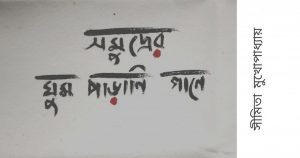 সমুদ্রের
ঘুম পাড়ানি গানে
সীমিতা মুখোপাধ্যায়